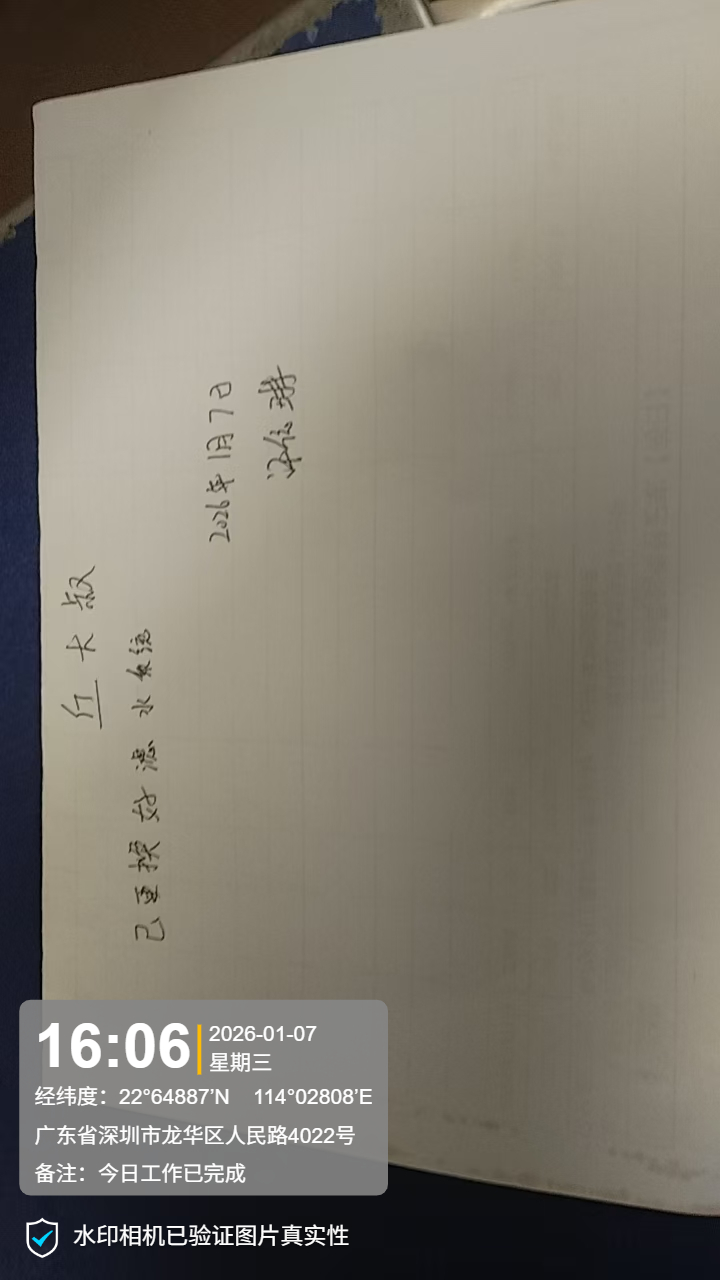 红大叔
已更换好滤水系统
2026年1月7日
16:06
2026-01-07
星期三
经纬度：22°64887'N 114°02808'E
广东省深圳市龙华区人民路4022号
备注：今日工作已完成
水印相机已验证图片真实性